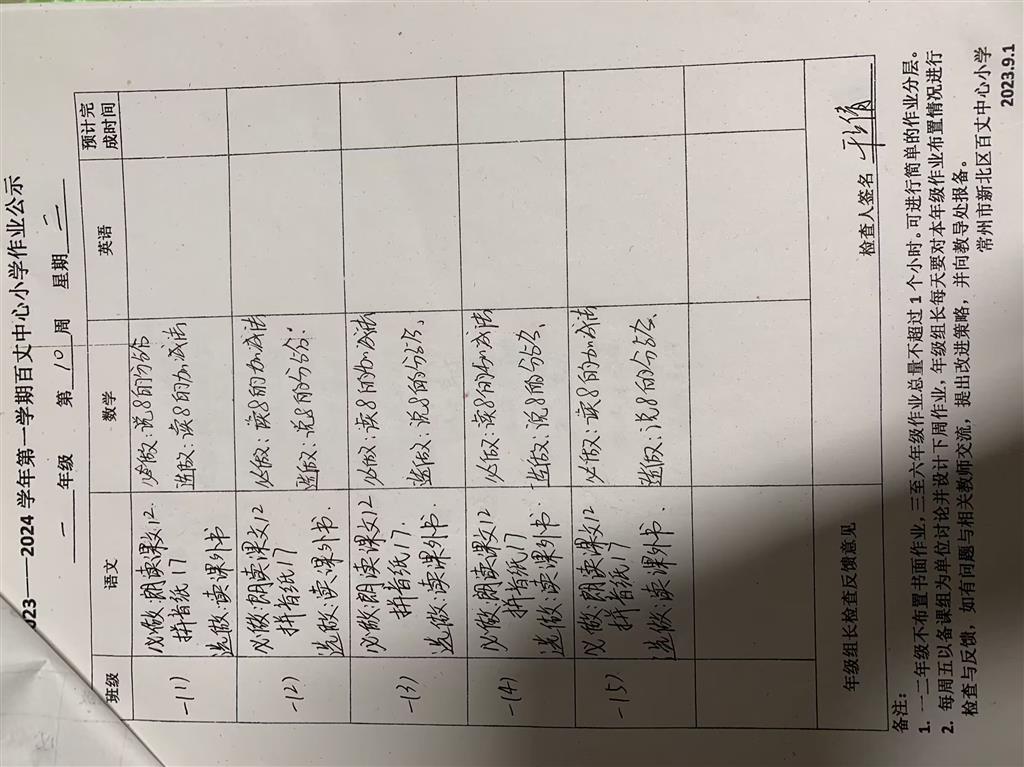 2023——2024 学年第一学期百丈中心小学作业公示
一 年级 第 10 周 星期 二
班级 语文 数学 英语 预计完成时间
一(1)
必做:朗读课文12.
拼音纸17
选做:读课外书
必做:说8的分与合
选做:读8的加减法
一(2)
必做:朗读课文12
拼音纸17
选做:读课外书.
必做:读8的加减法
选做:说8的分与合.
一(3)
必做:朗读课文12
拼音纸17.
选做:读课外书.
必做:读8的加减法
选做:说8的分与合.
一(4)
必做:朗读课文12
拼音纸17
选做:读课外书
必做:读8的加减法
选做:说8的分与合.
一(5)
必做:朗读课文12
拼音纸17
选做:读课外书.
必做:读8的加减法
选做:说8的分与合.
年级组长检查反馈意见
检查人签名
备注:
1. 一二年级不布置书面作业,三至六年级作业总量不超过 1 个小时。可进行简单的作业分层。
2. 每周五以备课组为单位讨论并设计下周作业,年级组长每天要对本年级作业布置情况进行
检查与反馈,如有问题与相关教师交流,提出改进策略,并向教导处报备。
常州市新北区百丈中心小学
2023.9.1